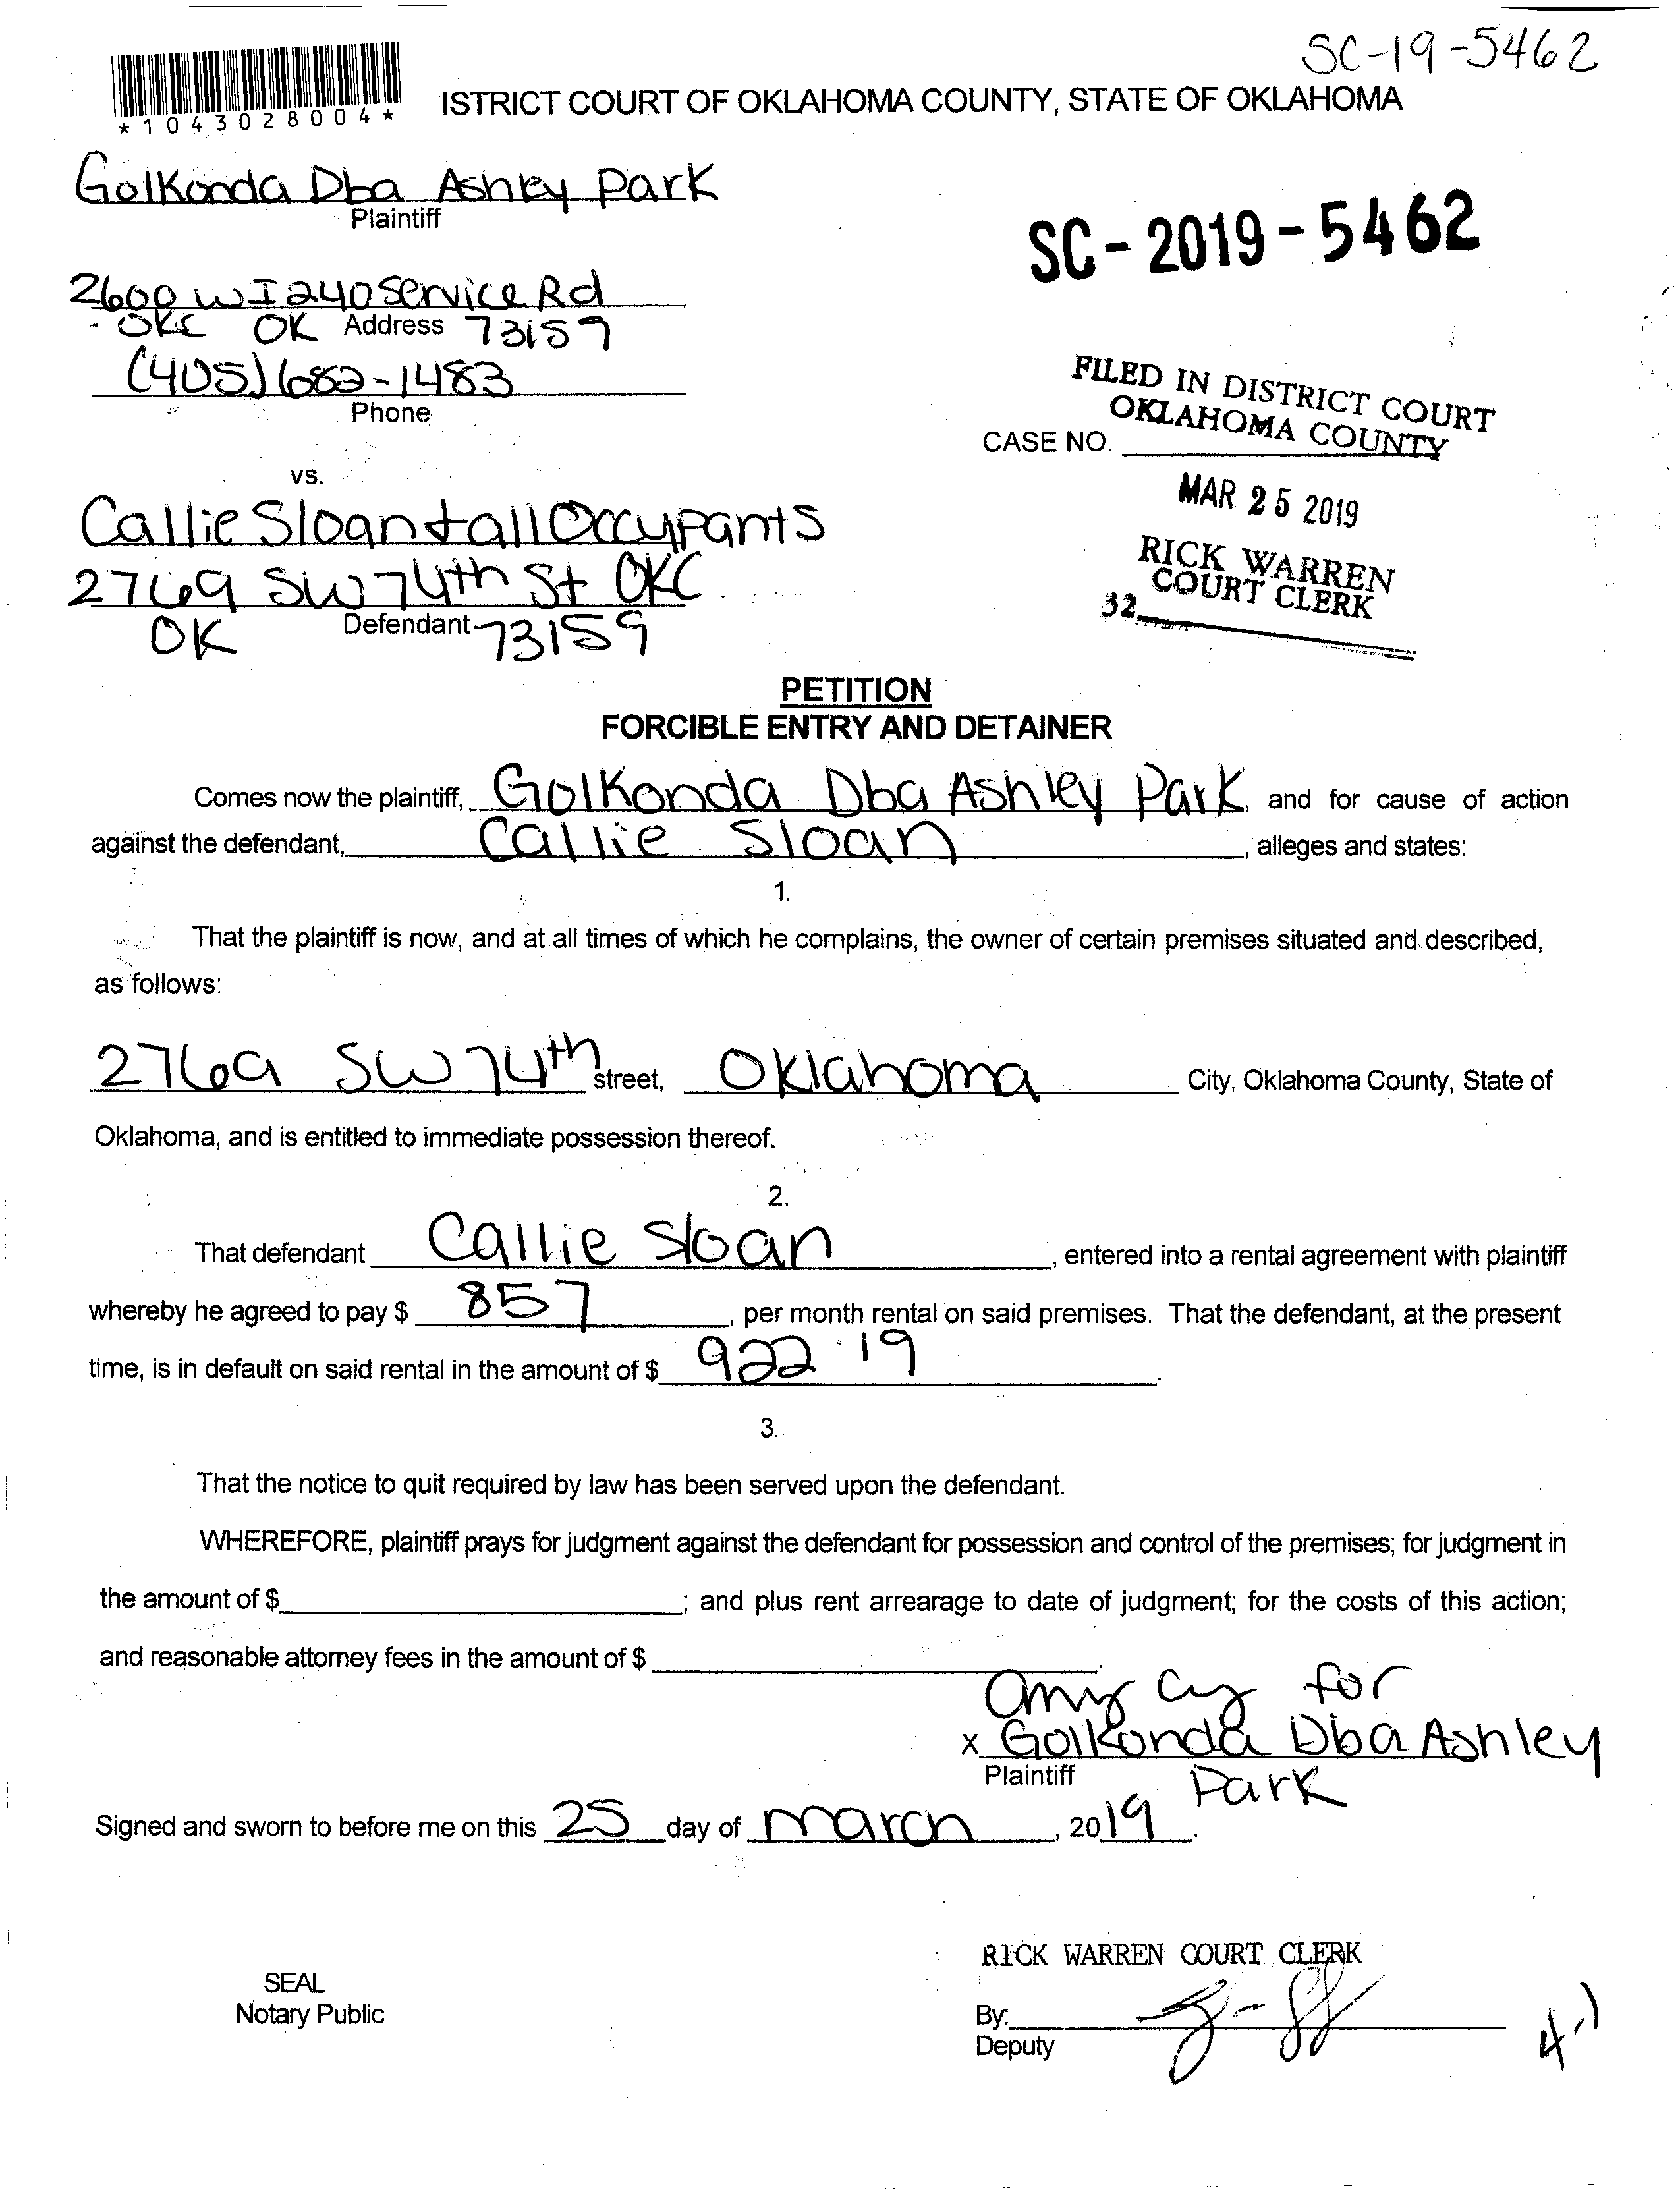 SC-19-5462
*1043028004*
ISTRICT COURT OF OKLAHOMA COUNTY, STATE OF OKLAHOMA
Golkonda Dba Ashley Park
Plaintiff
SC-2019-5462
2600 W I 240 Service Rd
OKC OK Address 73159
(405) 682-1483
Phone
FILED IN DISTRICT COURT
OKLAHOMA COUNTY
CASE NO.
MAR 25 2019
RICK WARREN
COURT CLERK
32
vs.
Callie Sloan + all Occupants
2769 SW 74th St OKC
OK Defendant 73159
PETITION
FORCIBLE ENTRY AND DETAINER
Comes now the plaintiff, Golkonda Dba Ashley Park, and for cause of action
against the defendant, Callie Sloan, alleges and states:
1.
That the plaintiff is now, and at all times of which he complains, the owner of certain premises situated and described,
as follows:
2769 SW 74th street, Oklahoma City, Oklahoma County, State of
Oklahoma, and is entitled to immediate possession thereof.
2.
That defendant Callie Sloan, entered into a rental agreement with plaintiff
whereby he agreed to pay $ 857, per month rental on said premises. That the defendant, at the present
time, is in default on said rental in the amount of $ 922.19.
3.
That the notice to quit required by law has been served upon the defendant.
WHEREFORE, plaintiff prays for judgment against the defendant for possession and control of the premises; for judgment in
the amount of $ ; and plus rent arrearage to date of judgment; for the costs of this action;
and reasonable attorney fees in the amount of $ .
for
x Golkonda Dba Ashley
Plaintiff Park
Signed and sworn to before me on this 25 day of march, 2019.
RICK WARREN COURT CLERK
SEAL
Notary Public
By:
Deputy
4-1